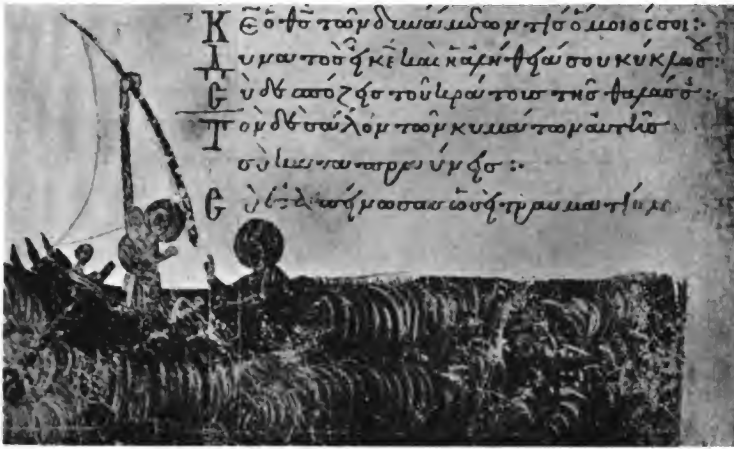 Κε ὁ θς τῶν δυνάμεων τίς ὅμοιός σοι:·
Δυνατὸς εἶ κε καὶ ἡ ἀλήθειά σου κύκλω σου:·
Σὺ δεσπόζεις τοῦ κράτους τῆς θαλάσσης:·
Τὸν δὲ σάλον τῶν κυμάτων αὐτῆς
σὺ καταπραΰνεις:·
Σὺ ἐταπείνωσας ὡς τραυματίαν